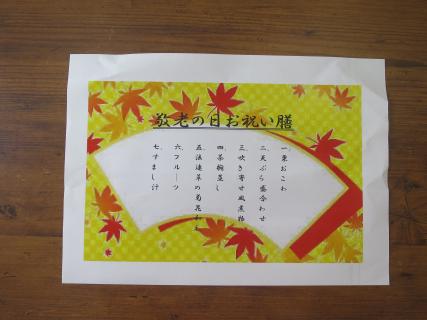 敬老の日お祝い膳
一、栗おこわ
二、天ぷら盛合わせ
三、吹き寄せ風煮物
四、茶碗蒸し
五、法連草の菊花和え
六、フルーツ
七、すまし汁